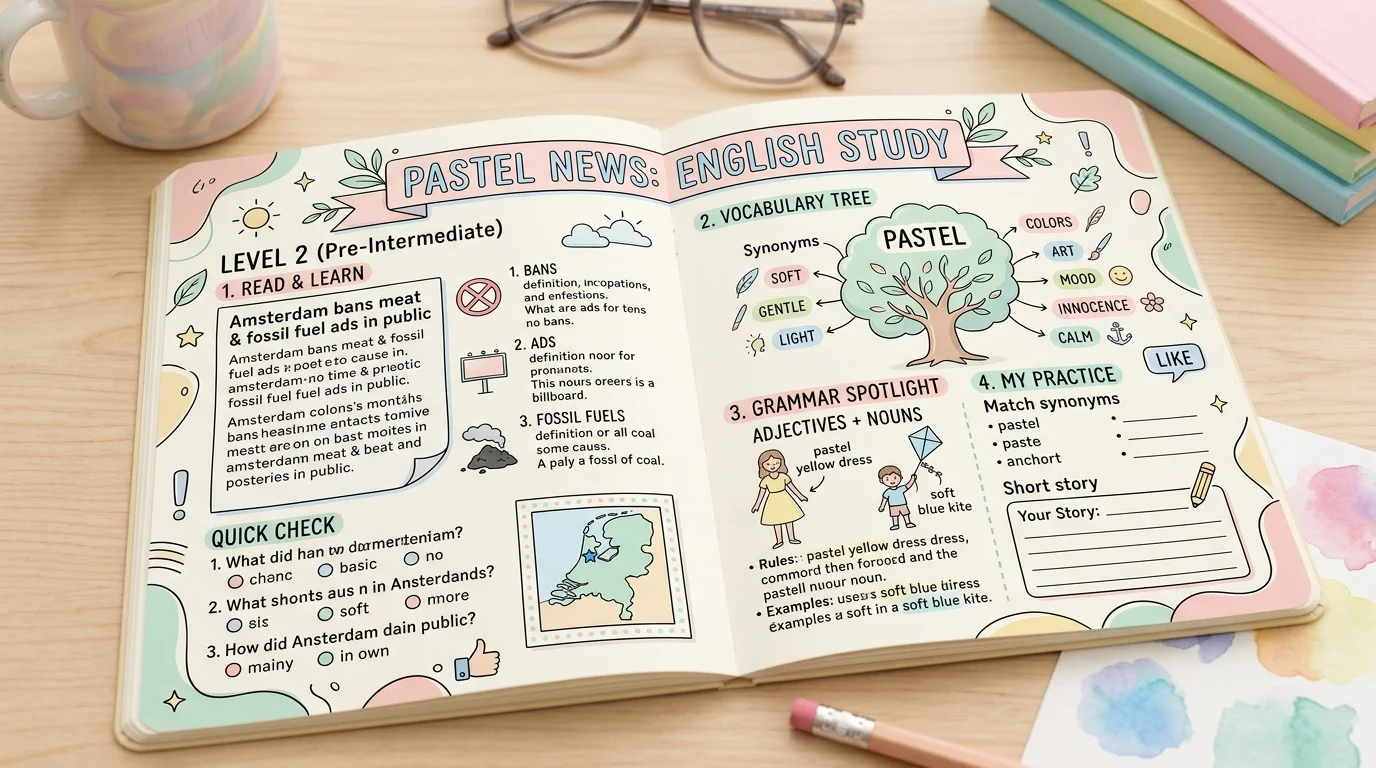 PASTEL NEWS: ENGLISH STUDY
LEVEL 2 (Pre-Intermediate)
1. READ & LEARN
Amsterdam bans meat
& fossil fuel ads in public
Amsterdam bans meat & fossil
fuel ads to cause in.
amsterdam-no time &
fossil fuel fuel ads in public.
Amsterdam colons's
bans entacts
on on bast moites in
amsterdam meat & beat and
posteries in public.
1. BANS
definition,
and enfestions.
What are ads for tens
no bans.
2. ADS
definition noor for
This nours oreers is a
billboard.
3. FOSSIL FUELS
definition or all coal
some causs.
A paly a fossl of coal.
QUICK CHECK
1. What did han
chanc basic no
2. What shonts aus n in Amsterdands?
sis soft more
3. How did Amsterdam dain public?
mainy in own
2. VOCABULARY TREE
Synonyms
SOFT
GENTLE
LIGHT
PASTEL
COLORS
ART
MOOD
INNOCENCE
CALM
LIKE
3. GRAMMAR SPOTLIGHT
ADJECTIVES + NOUNS
pastel
yellow dress
soft
blue kite
• Rules: pastel yellow dress dress,
commord then and the
pastell nuour noun.
• Examples: uses a soft blue
examples a soft in a soft blue kite.
4. MY PRACTICE
Match synonyms
• pastel
• paste
• anchort
Short story
Your Story: